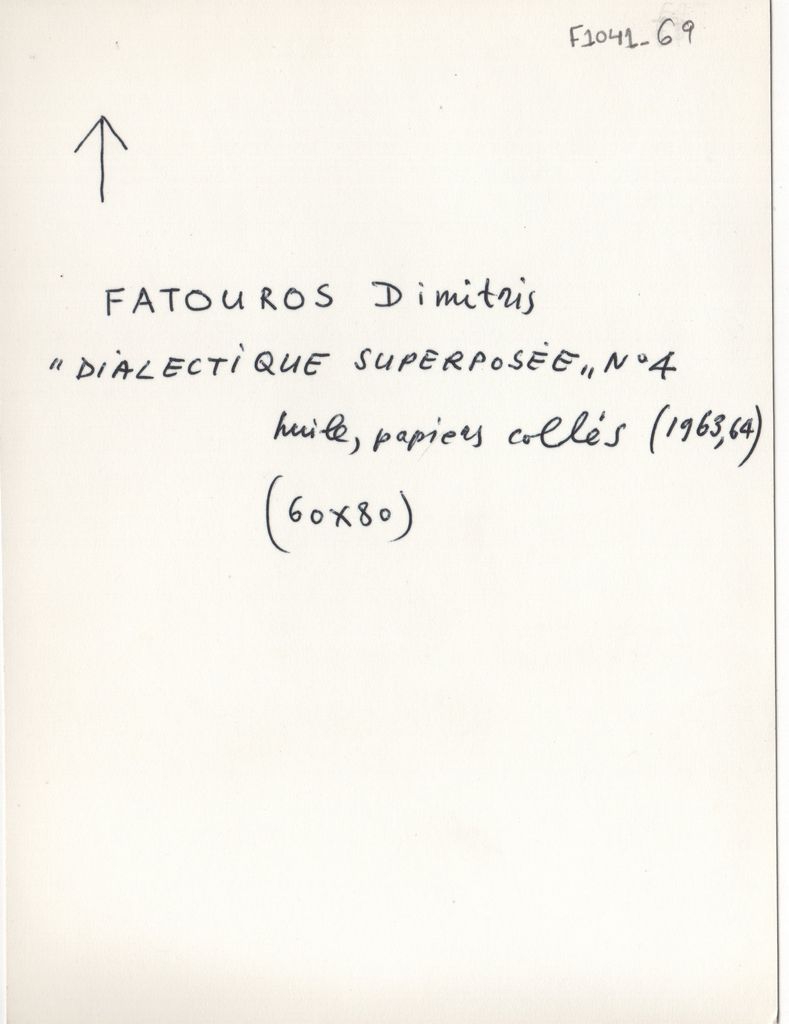 F1041-69
FATOUROS Dimitris
"DIALECTIQUE SUPERPOSÉE„ N°4
huile, papiers collés (1963,64)
(60x80)